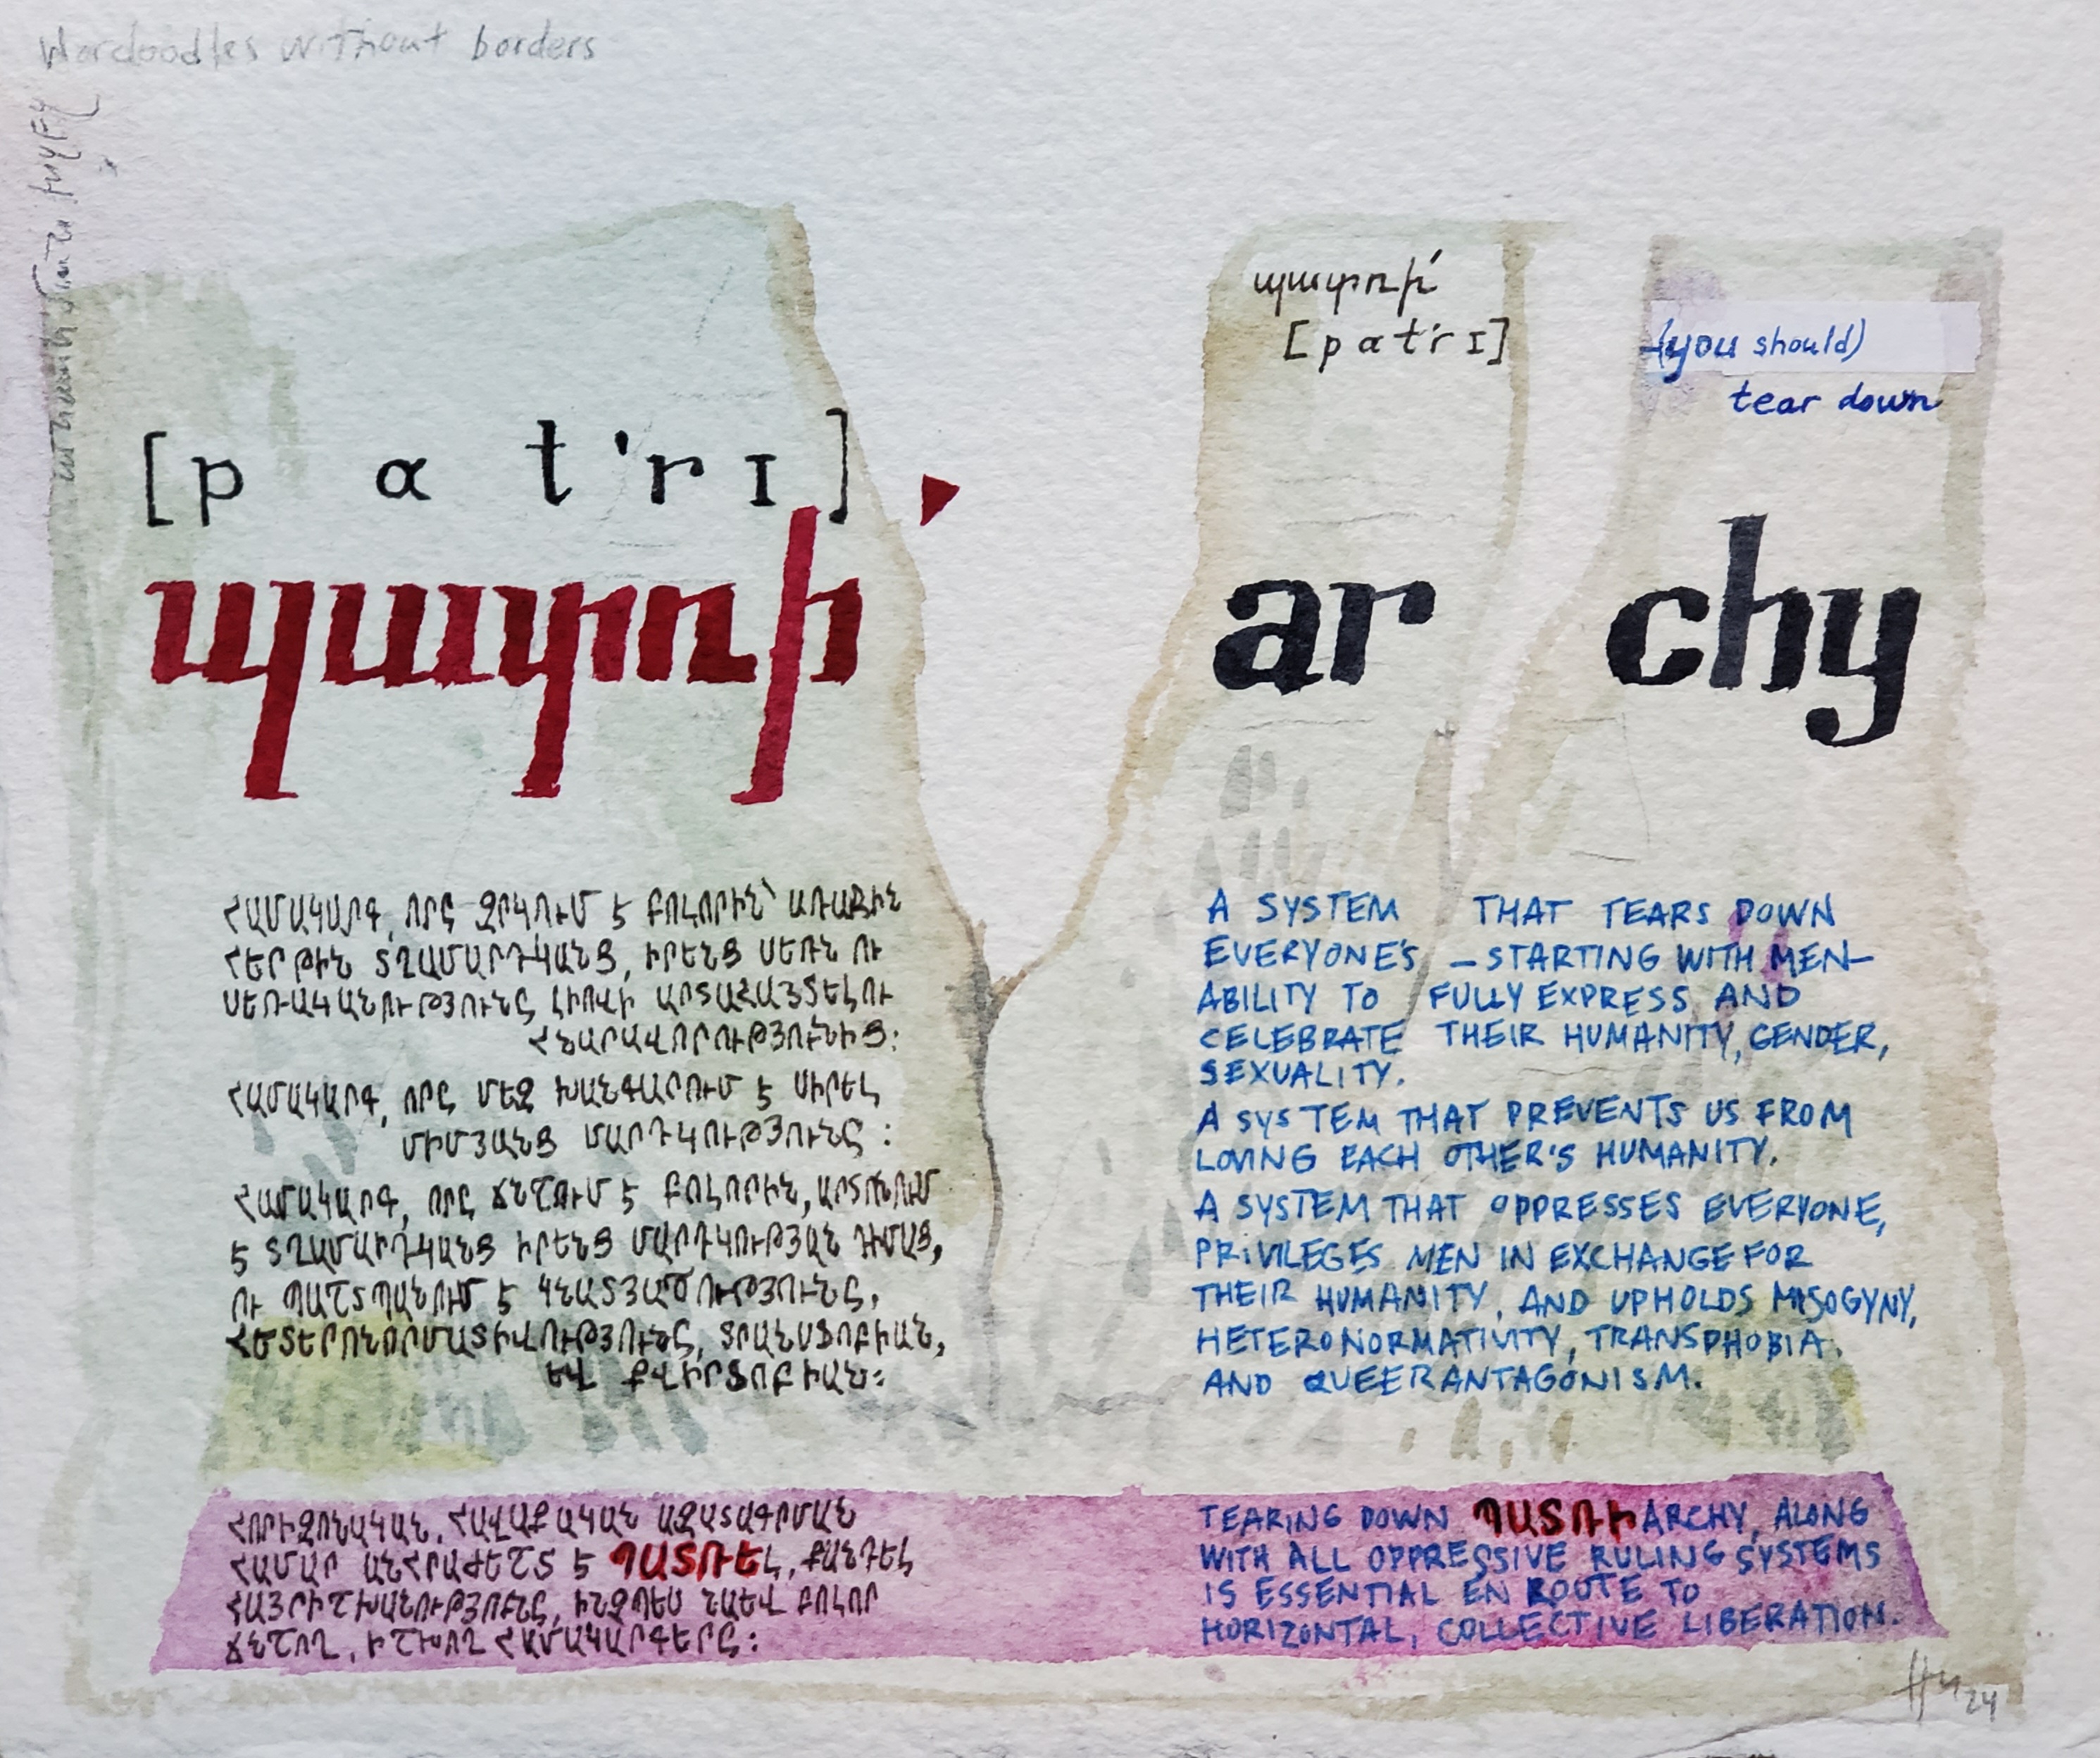 Wordoodles without borders
պատռի՛
[pαt'rɪ]
(you should)
tear down
[p α t'r ɪ]
պատռի՛
ar chy
ՀԱՄԱԿԱՐԳ, ՈՐԸ ԶՐԿՈՒՄ Է ԲՈԼՈՐԻՆ՝ ԱՌԱՋԻՆ
ՀԵՐԹԻՆ ՏՂԱՄԱՐԴԿԱՆՑ, ԻՐԵՆՑ ՍԵՌՆ ՈՒ
ՍԵՌԱԿԱՆՈՒԹՅՈՒՆԸ ԼԻՈՎԻ ԱՐՏԱՀԱՅՏԵԼՈՒ
ՀՆԱՐԱՎՈՐՈՒԹՅՈՒՆԻՑ։
ՀԱՄԱԿԱՐԳ, ՈՐԸ ՄԵԶ ԽԱՆԳԱՐՈՒՄ Է ՍԻՐԵԼ
ՄԻՄՅԱՆՑ ՄԱՐԴԿՈՒԹՅՈՒՆԸ։
ՀԱՄԱԿԱՐԳ, ՈՐԸ ՃՆՇՈՒՄ Է ԲՈԼՈՐԻՆ, ԱՐՏՈՆՈՒՄ
Է ՏՂԱՄԱՐԴԿԱՆՑ ԻՐԵՆՑ ՄԱՐԴԿՈՒԹՅԱՆ ԴԻՄԱՑ,
ՈՒ ՊԱՇՏՊԱՆՈՒՄ Է ԿՆԱՏՅԱՑՈՒԹՅՈՒՆԸ,
ՀԵՏԵՐՈՆՈՐՄԱՏԻՎՈՒԹՅՈՒՆԸ, ՏՐԱՆՍՖՈԲԻԱՆ,
ԵՎ ՔՎԻՐՖՈԲԻԱՆ։
A SYSTEM THAT TEARS DOWN
EVERYONE'S —STARTING WITH MEN—
ABILITY TO FULLY EXPRESS AND
CELEBRATE THEIR HUMANITY, GENDER,
SEXUALITY.
A SYSTEM THAT PREVENTS US FROM
LOVING EACH OTHER'S HUMANITY.
A SYSTEM THAT OPPRESSES EVERYONE,
PRIVILEGES MEN IN EXCHANGE FOR
THEIR HUMANITY, AND UPHOLDS MISOGYNY,
HETERONORMATIVITY, TRANSPHOBIA,
AND QUEERANTAGONISM.
ՀՈՐԻԶՈՆԱԿԱՆ, ՀԱՎԱՔԱԿԱՆ ԱԶԱՏԱԳՐՄԱՆ
ՀԱՄԱՐ ԱՆՀՐԱԺԵՇՏ Է ՊԱՏՌԵԼ, ՔԱՆԴԵԼ
ՀԱՅՐԻՇԽԱՆՈՒԹՅՈՒՆԸ, ԻՆՉՊԵՍ ՆԱԵՎ ԲՈԼՈՐ
ՃՆՇՈՂ, ԻՇԽՈՂ ՀԱՄԱԿԱՐԳԵՐԸ։
TEARING DOWN ՊԱՏՌԻARCHY, ALONG
WITH ALL OPPRESSIVE RULING SYSTEMS
IS ESSENTIAL EN ROUTE TO
HORIZONTAL, COLLECTIVE LIBERATION.
24